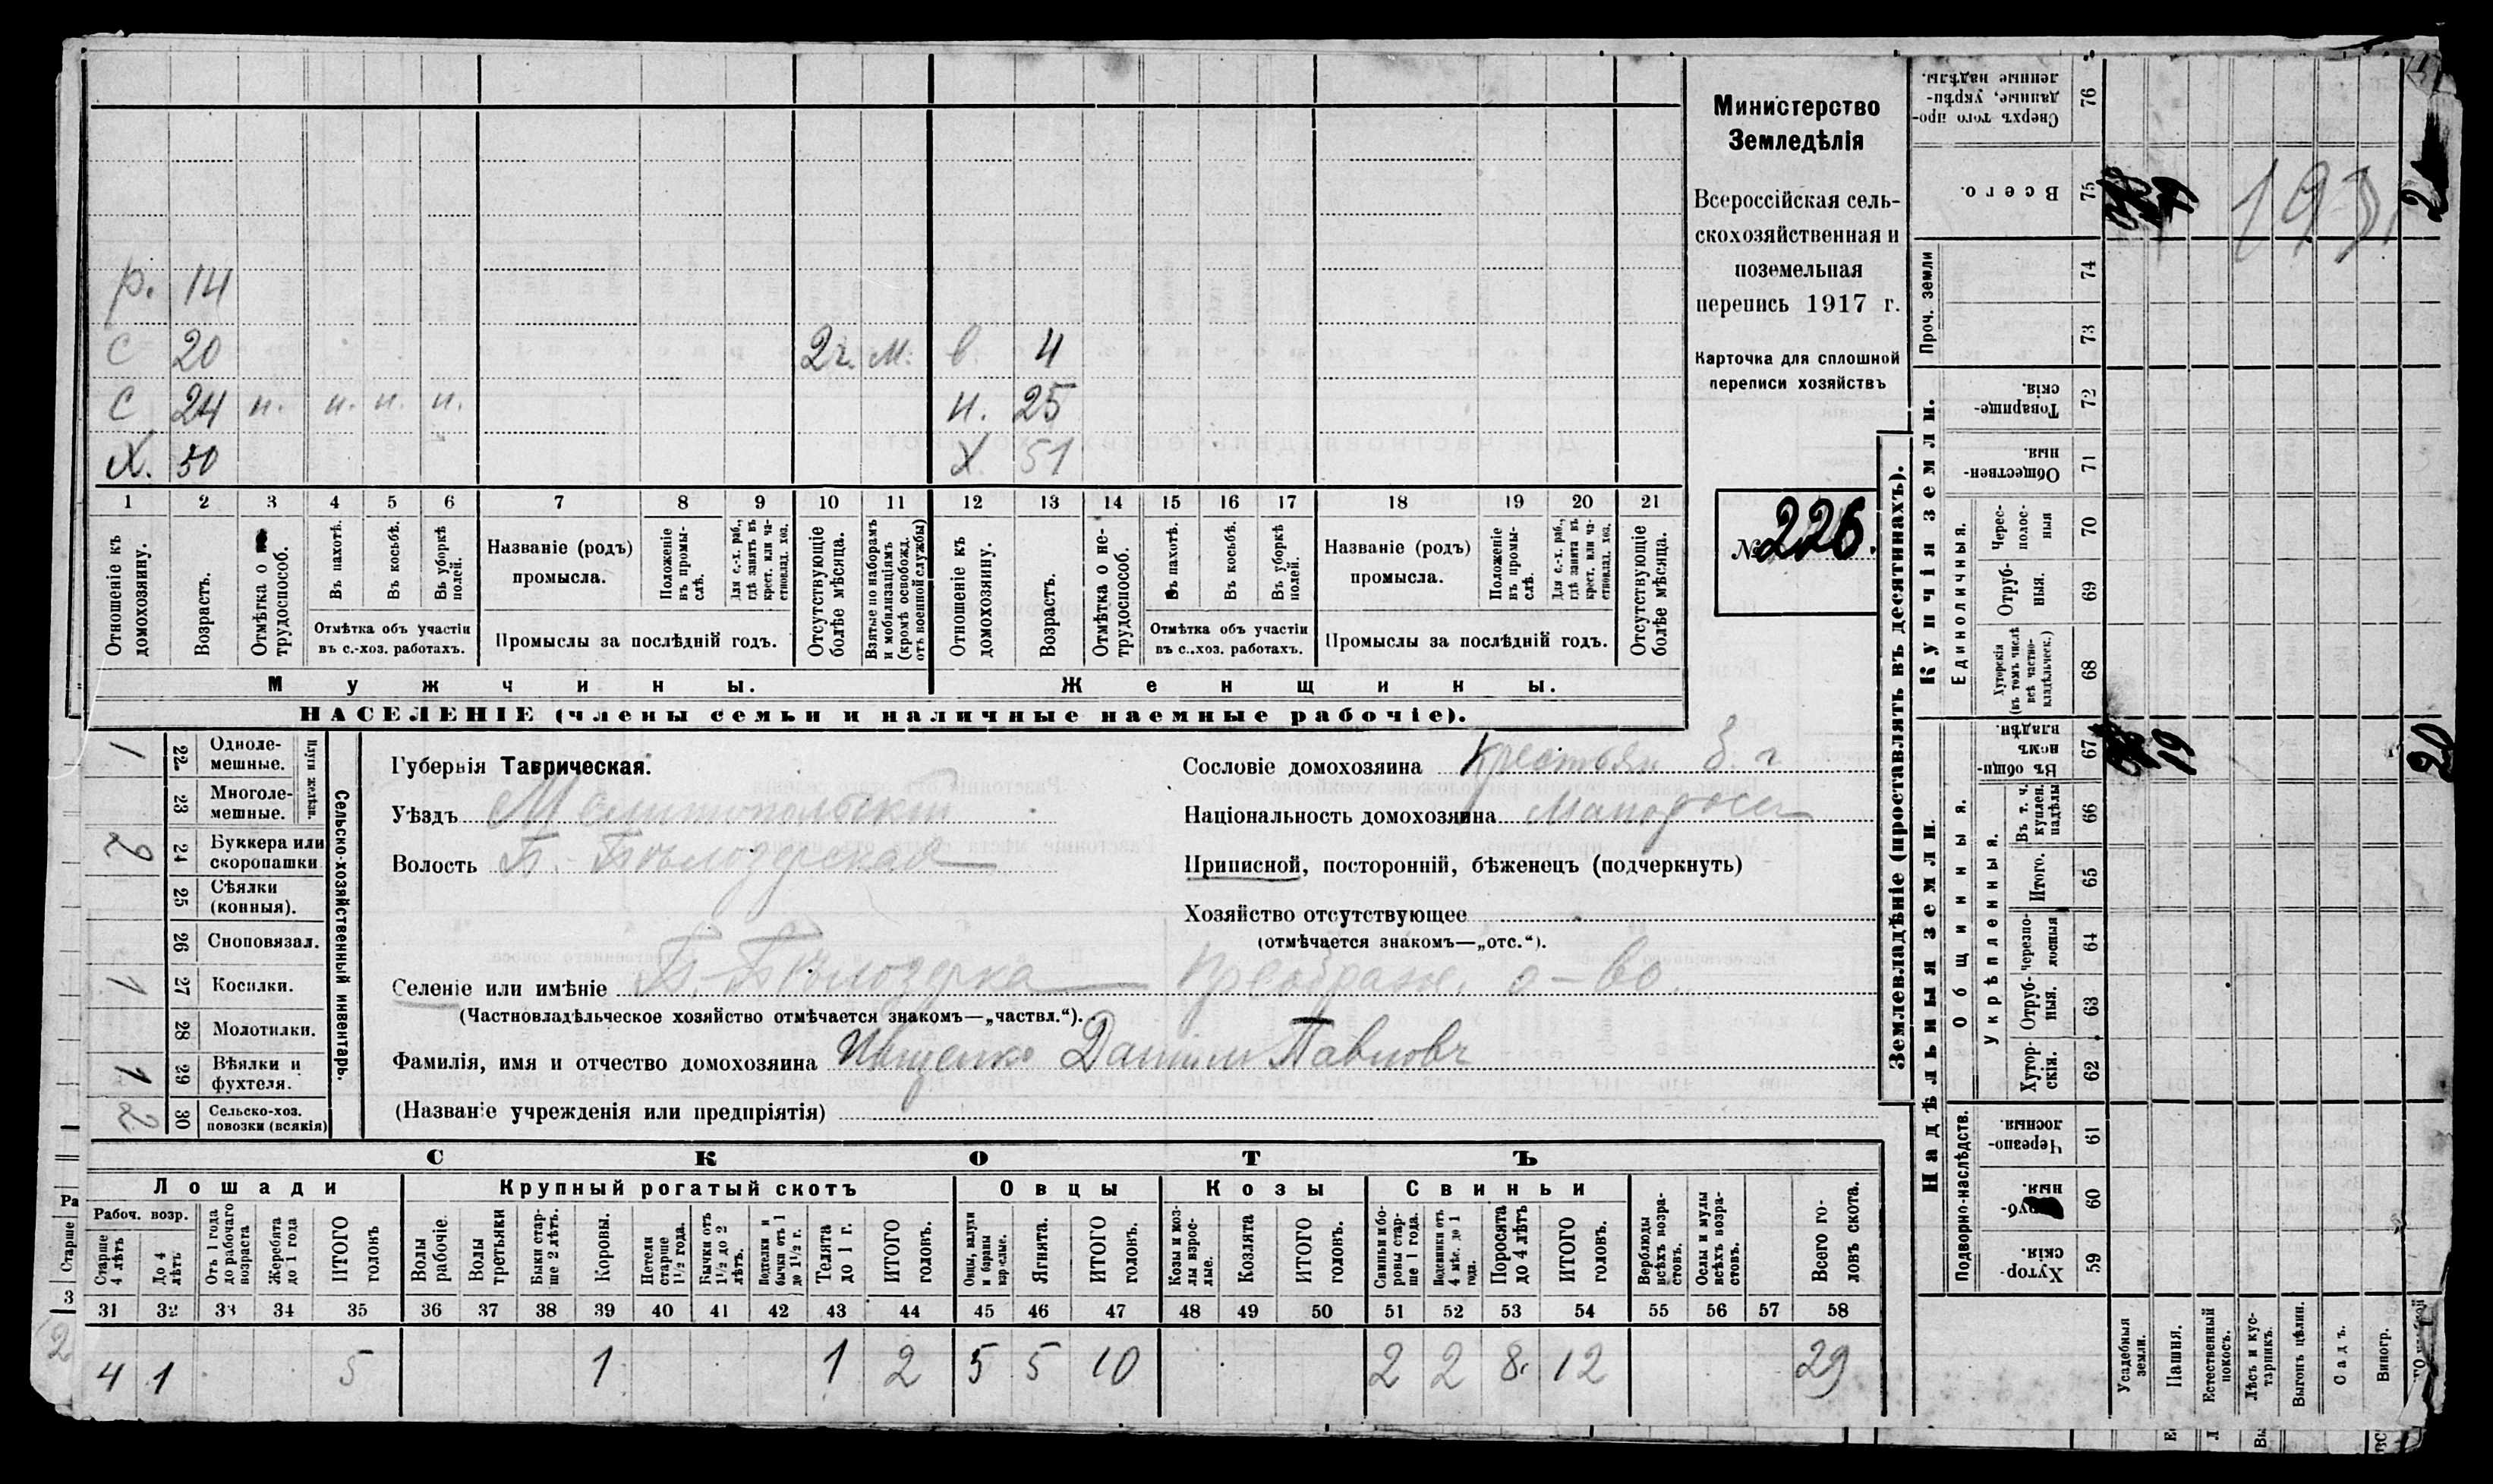 р. 14
С 20 2 г. м. в 4
С 24 н. н. н. н. н. 25
Х. 50 Х 51
1 2 3 4 5 6 7 8 9 10 11 12 13 14 15 16 17 18 19 20 21
Отношеніе къ домохозяину.
Возрастъ.
Отмѣтка о не-трудоспособ.
Въ пахотѣ.
Въ косьбѣ.
Въ уборкѣ полей.
Отмѣтка объ участіи
въ с.-хоз. работахъ.
Названіе (родъ)
промысла.
Положеніе въ промы-слѣ.
Для с.-х. раб., гдѣ занятъ въ крест. или ча-стновлад. хоз.
Промыслы за послѣдній годъ.
Отсутствующіе болѣе мѣсяца.
Взятые по наборамъ и мобилизаціямъ (кромѣ освобожд. отъ военной службы)
Отношеніе къ домохозяину.
Возрастъ.
Отмѣтка о не-трудоспособ.
Въ пахотѣ.
Въ косьбѣ.
Въ уборкѣ полей.
Отмѣтка объ участіи
въ с.-хоз. работахъ.
Названіе (родъ)
промысла.
Положеніе въ промы-слѣ.
Для с.-х. раб., гдѣ занята въ крест. или ча-стновлад. хоз.
Промыслы за послѣдній годъ.
Отсутствующіе болѣе мѣсяца.
Мужчины. Женщины.
НАСЕЛЕНІЕ (члены семьи и наличные наемные рабочіе).
Министерство
Земледѣлія
Всероссійская сель-
скохозяйственная и
поземельная
перепись 1917 г.
Карточка для сплошной
переписи хозяйствъ
№ 226.
Сельско-хозяйственный инвентарь.
Плуги желѣзн.
1 22 Одноле-мешные.
23 Многоле-мешные.
2 24 Буккера или скоропашки
25 Сѣялки (конныя).
26 Сноповязал.
1 27 Косилки.
28 Молотилки.
1 29 Вѣялки и фухтеля.
2 30 Сельско-хоз. повозки (всякія)
Губернія Таврическая.
Уѣздъ Мелитопольскій
Волость Б.-Бѣлозерская
Сословіе домохозяина Крестьян
Національность домохозяина Малоросс
Приписной, посторонній, бѣженецъ (подчеркнуть)
Хозяйство отсутствующее
(отмѣчается знакомъ—„отс.“).
Селеніе или имѣніе Б.-Бѣлозерка Преображ. о-во.
(Частновладѣльческое хозяйство отмѣчается знакомъ—„частвл.“).
Фамилія, имя и отчество домохозяина Ищенко Даніилъ Павловъ
(Названіе учрежденія или предпріятія)
СКОТЪ
Лошади Крупный рогатый скотъ Овцы Козы Свиньи
Рабоч. возр.
Старше 4 лѣтъ
До 4 лѣтъ
Отъ 1 года до рабочаго возраста
Жеребята до 1 года
ИТОГО головъ
Волы рабочіе.
Волы третьяки
Быки стар-ше 2 лѣтъ.
Коровы.
Нетели старше 1½ года.
Бычки отъ 1½ до 2 лѣтъ.
Подтелки и бычки отъ 1 до 1½ г.
Телята до 1 г.
ИТОГО головъ.
Овцы, валухи и бараны взрослые.
Ягнята.
ИТОГО головъ.
Козы и коз-лы взрос-лые.
Козлята
ИТОГО головъ.
Свиньи и бо-ровы стар-ше 1 года.
Подсвинки отъ 4 мѣс. до 1 года.
Поросята до 4 лѣтъ
ИТОГО головъ.
Верблюды всѣхъ возра-стовъ.
Ослы и мулы всѣхъ возра-стовъ.
Всего го-ловъ скота.
31 32 33 34 35 36 37 38 39 40 41 42 43 44 45 46 47 48 49 50 51 52 53 54 55 56 57 58
4 1 5 1 1 2 5 5 10 2 2 8 12 29
Землевладѣніе (проставлять въ десятинахъ).
Купчія земли.
Надѣльныя земли.
Сверхъ того про-данные, укрѣп-ленные надѣлы. 76
Всего. 75
Проч. земли 74 73
Товарище-скія. 72
Обществен-ныя. 71
Единоличныя.
Черес-полос-ныя 70
Отруб-ныя. 69
Хуторскія (въ томъ числѣ всѣ частно-владѣльческ.) 68
Общинныя.
Въ общин-номъ владѣн. 67 19
Укрѣпленныя.
Въ т. ч. куплен. надѣлы 66
Итого. 65
Черезпо-лосныя 64
Отруб-ныя. 63
Хутор-скія. 62
Подворно-наслѣдств.
Черезпо-лосныя. 61
60
Хутор-скія. 59
Усадебныя земли.
Пашня.
Естественный покосъ.
Лѣсъ и кус-тарникъ.
Выгонъ цѣлин.
Садъ.
Виногр.
20